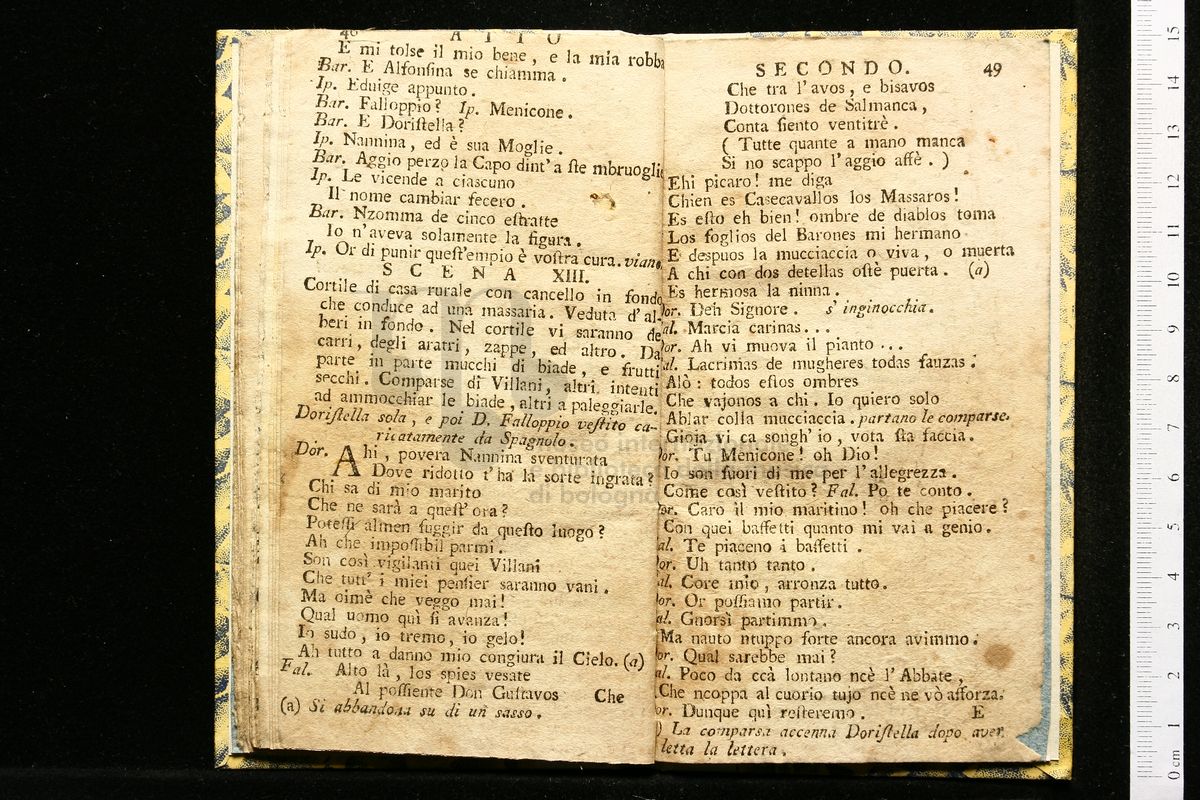 46 ATTO
E mi tolse il mio bene, e la mia robba
Bar. E Alfonſina se chiamma.
Ip. Eduige appunto.
Bar. Falloppio? Ip. Menicone.
Bar. E Doriſtella?
Ip. Nannina, ed è sua Moglie.
Bar. Aggio perzo la Capo dint' a ſte mbruoglie
Ip. Le vicende a ciascuno
Il nome cambiar fecero.
Bar. Nzomma de cinco eſtratte
Io n'aveva solamente la figura.
Ip. Or di punir queſt'empio è voſtra cura. viano
SCENA XIII.
Cortile di casa rurale con cancello in fondo
che conduce ad una massaria. Veduta d'al-
beri in fondo. Nel cortile vi saranno de
carri, degli aratri, zappe, ed altro. Da
parte in parte mucchi di biade, e frutti
secchi. Comparse di Villani, altri intenti
ad ammocchiar le biade, altri a paleggiarle.
Doriſtella sola, e poi D. Falloppio veſtito ca-
ricatamente da Spagnolo.
Dor. Ahi, povera Nannina sventurata
Dove ridotto t'ha la sorte ingrata?
Chi sa di mio marito
Che ne sarà a queſt'ora?
Poteſſi almen fuggir da queſto luogo?
Ah che impoſſibil parmi.
Son così vigilanti quei Villani
Che tutt' i miei penſier saranno vani.
Ma oimè che veggo mai!
Qual uomo quì ſi avanza!
Io sudo, io tremo, io gelo!
Ah tutto a danno mio congiura il Cielo. (a)
Fal. Alto là, los spies vesate
Al poſſiente Don Guſtavos Che
(a) Si abbandona su di un sasso.
SECONDO. 49
Che tra l'avos, e bisavos
Dottorones de Salmanca,
Conta ſiento ventitrè.
( Tutte quante a mano manca
Si no scappo l'aggio affè. )
Ehi picaro! me diga
Chien es Casecavallos los Massaros!
Es eſto eh bien! ombre de diablos toma
Los foglios del Barones mi hermano
E despuos la mucciaccia o viva, o muerta
A chi con dos detellas oſtè puerta. (a)
Es hermosa la ninna.
Dor. Deh Signore. s' inginocchia.
Fal. Marcia carinas...
Dor. Ah vi muova il pianto...
Fal. Lacrimas de mugheres todas fauzas:
Alò: todos eſtos ombres
Che vajonos a chi. Io quiero solo
Ablar colla mucciaccia. partano le comparse.
Gioja vi ca songh'io, vota ſta faccia.
Dor. Tu Menicone! oh Dio!
Io son fuori di me per l'allegrezza.
Come così veſtito? Fal. Po te conto.
Dor. Caro il mio maritino! oh che piacere?
Con quei baffetti quanto mi vai a genio.
Fal. Te piaceno i baffetti.
Dor. Uh tanto tanto.
Fal. Core mio, arronza tutto.
Dor. Or poſſiamo partir.
Fal. Gnorsì partimmo.
Ma nauto ntuppo forte ancora avimmo.
Dor. Qual sarebbe mai?
Fal. Poco da ccà lontano ncè l'Abbate,
Che ncoppa al cuorio tujo ncè ne vò afforza.
Dor. Dunque quì reſteremo. E
) La comparsa accenna Doriſtella dopo aver
letta la lettera.
di bologna
0 cm 1 2 3 4 5 6 7 8 9 10 11 12 13 14 15